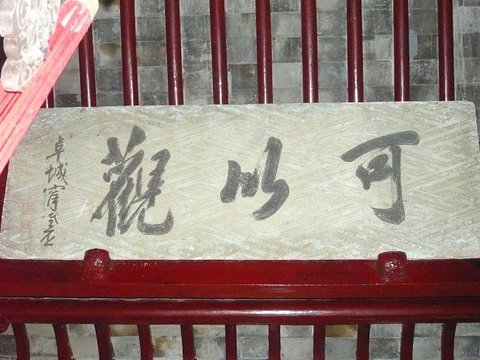 可以觀
阜城寧